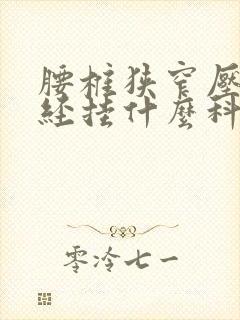 腰椎狭窄壓
经挂什麼科
零泠七一